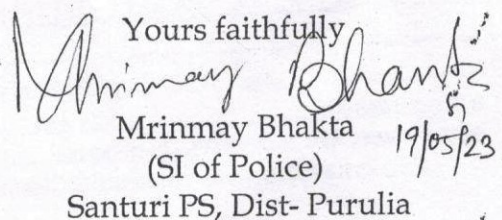 Yours faithfully
Mrinmay Bhakta
Mrinmay Bhakta
SI
19/05/23
(SI of Police)
Santuri PS, Dist- Purulia